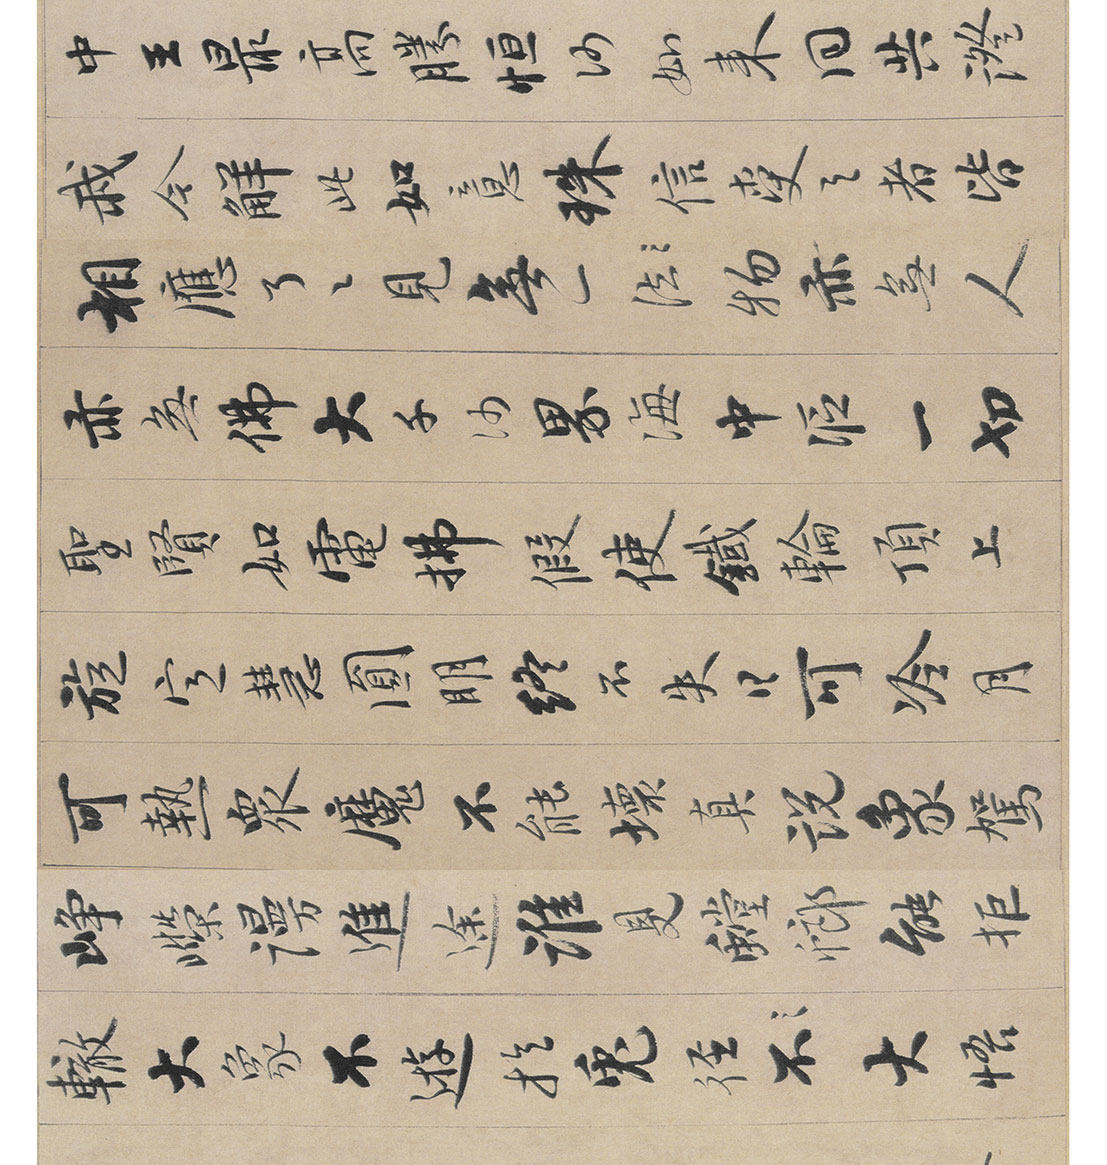 中王最高勝恒沙如來同共證
我今解此如意珠信受之者皆
相應了々見無一法物亦無人
亦無佛大千沙界海中漚一切
聖賢如電拂假使鐵輪頂上
旋定慧圓明終不失日可冷月
可熱眾魔不能壞真說象駕
崢嶸謾進途誰見螳螂能拒
轍大象不遊於兔徑不大悟